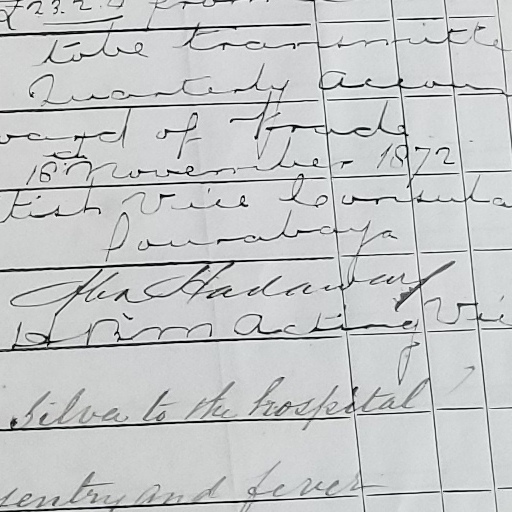 £23.2.4 from
to be transmitte
Quarterly Accoun
oard of Trade
18th November 1872
tish Vice Consula
Sourabaya
Hadaway
Acting Vic
Silva to the hospital
sentry and fever